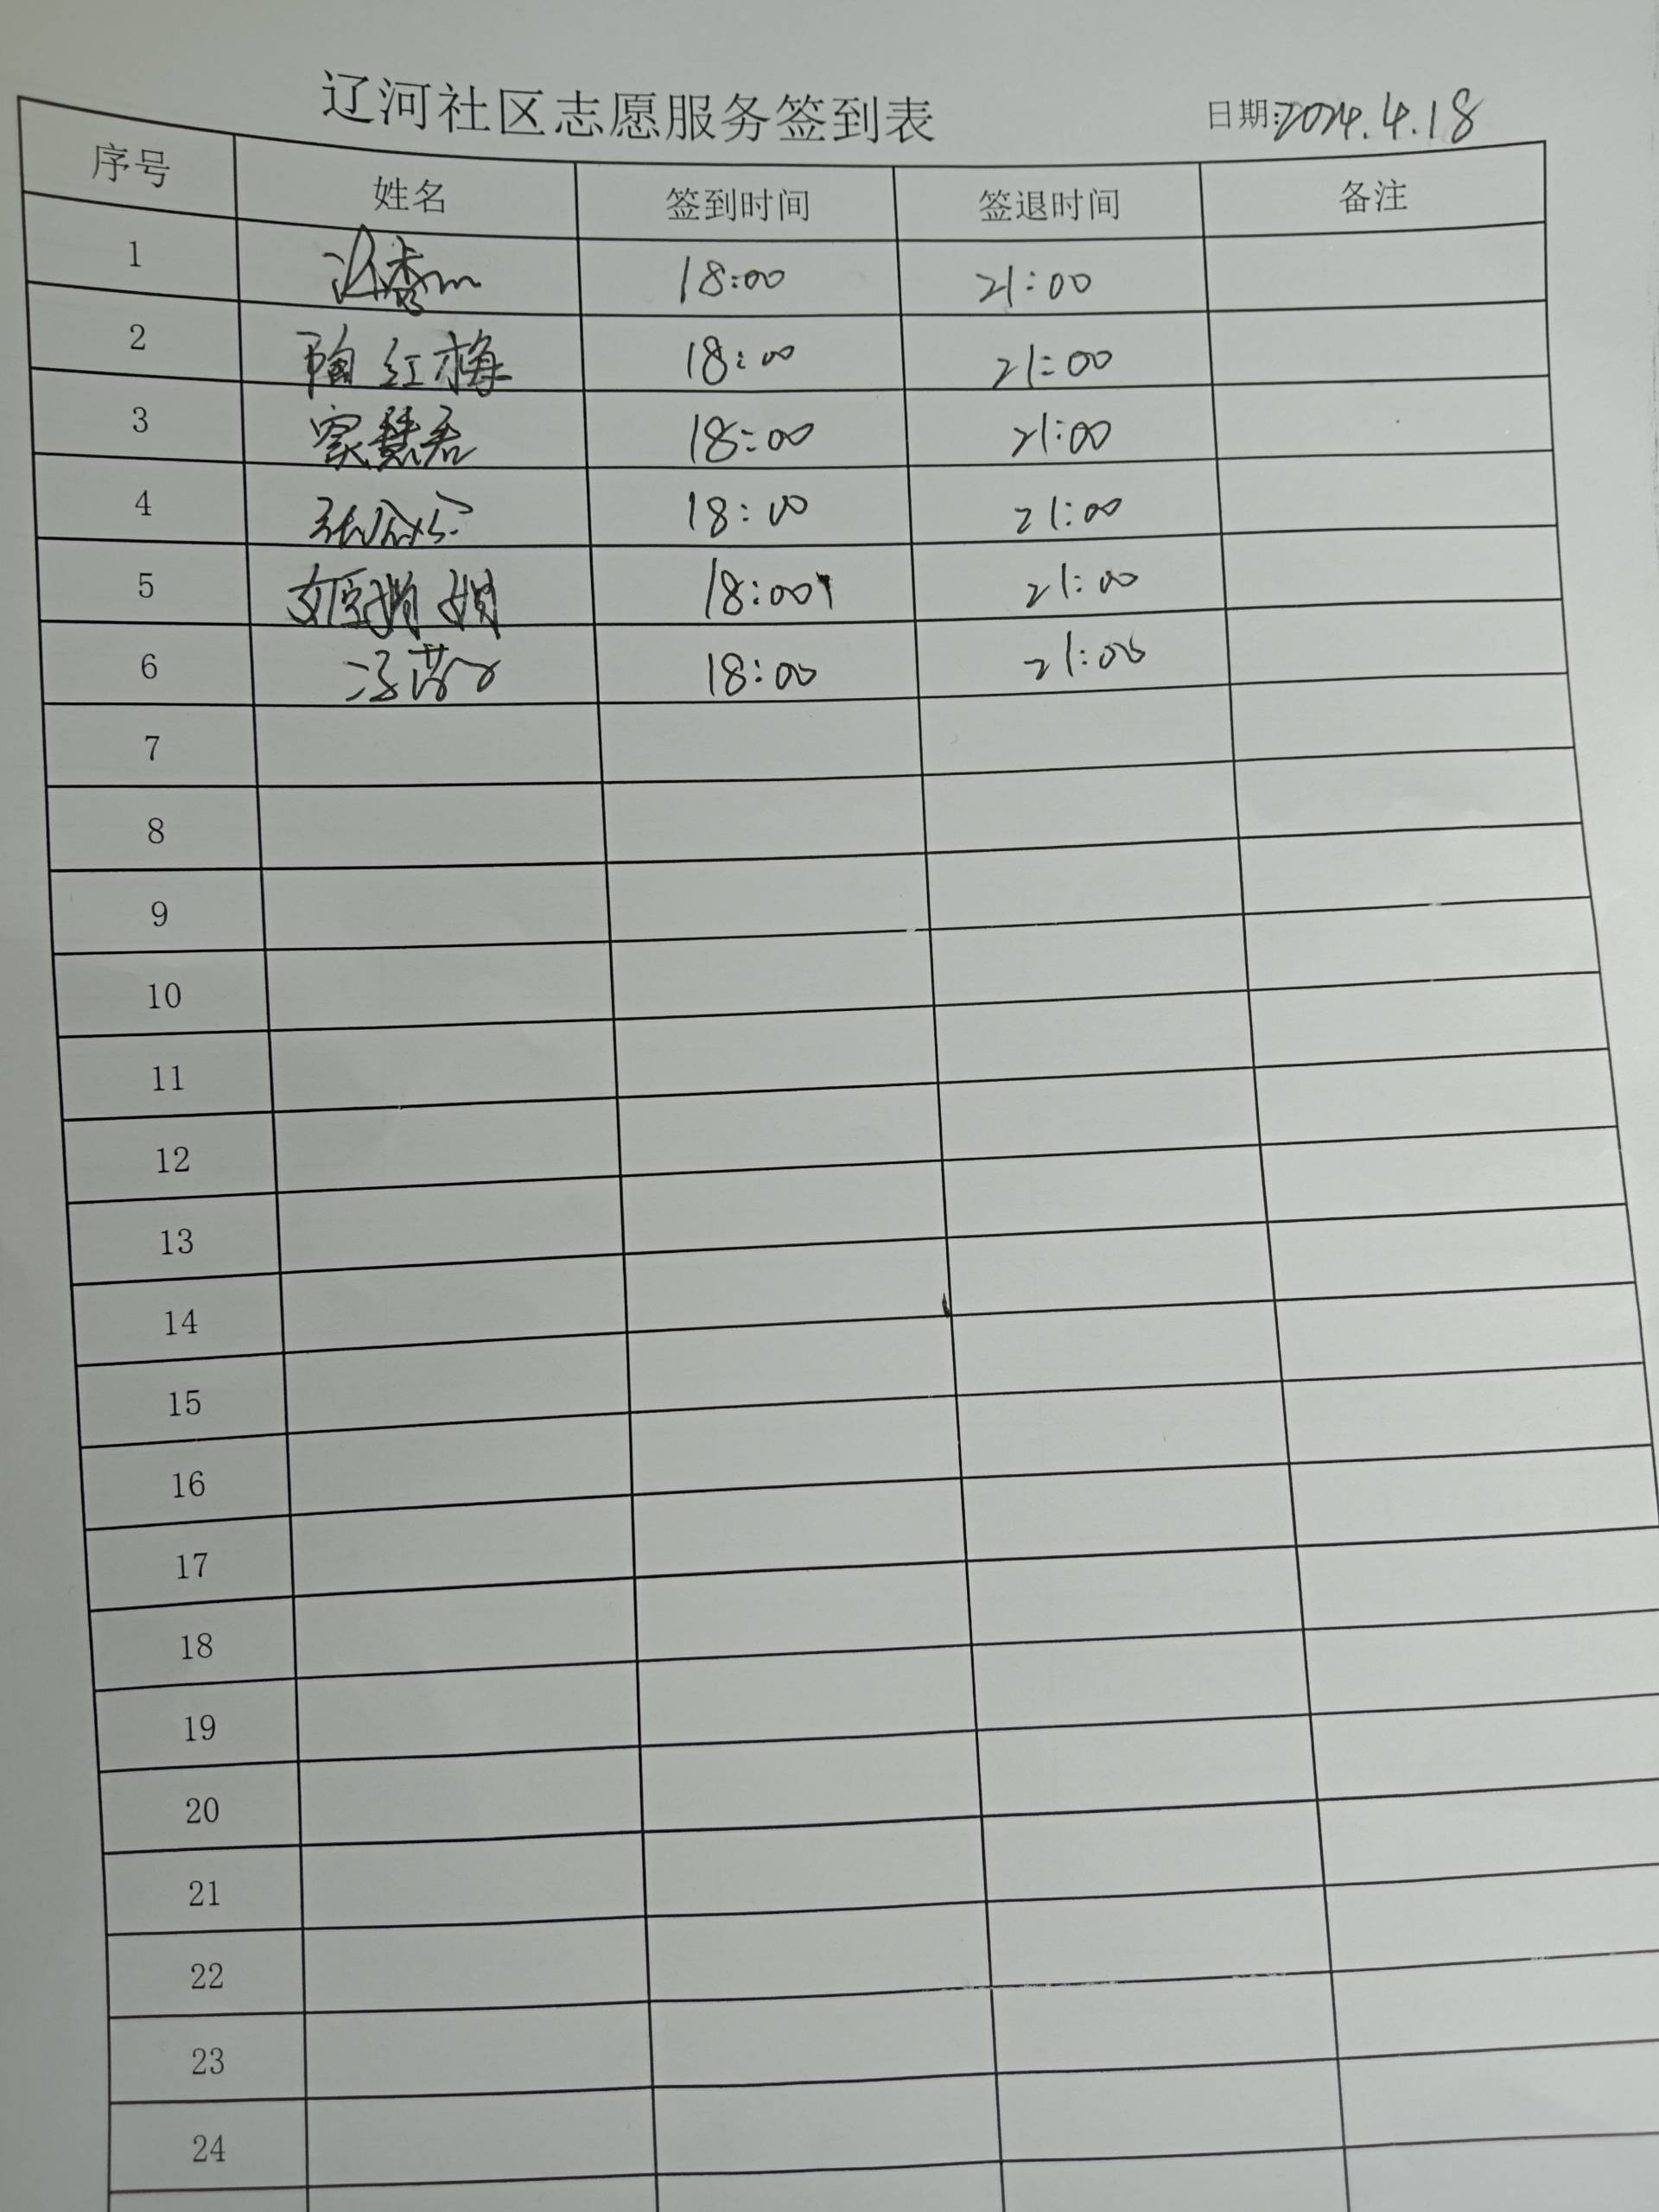 辽河社区志愿服务签到表
日期:2024.4.18
序号 姓名 签到时间 签退时间 备注
1 18:00 21:00
2 陶红梅 18:00 21:00
3 窦慧君 18:00 21:00
4 18:00 21:00
5 娟 18:00 21:00
6 冯 18:00 21:00
7
8
9
10
11
12
13
14
15
16
17
18
19
20
21
22
23
24